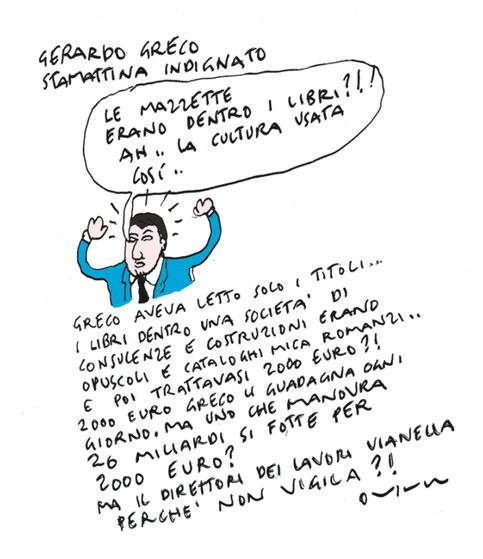 GERARDO GRECO
STAMATTINA INDIGNATO
LE MAZZETTE
ERANO DENTRO I LIBRI?!!
AH.. LA CULTURA USATA
COSÍ..
GRECO AVEVA LETTO SOLO I TITOLI...
I LIBRI DENTRO UNA SOCIETA' DI
CONSULENZE E COSTRUZIONI ERANO
OPUSCOLI E CATALOGHI MICA ROMANZI..
E POI TRATTAVASI 2000 EURO?!
2000 EURO GRECO LI GUADAGNA OGNI
GIORNO. MA UNO CHE MANOVRA
26 MILIARDI SI FOTTE PER
2000 EURO?
MA IL DIRETTORI DEI LAVORI VIANELLA
PERCHE' NON VIGILA?!